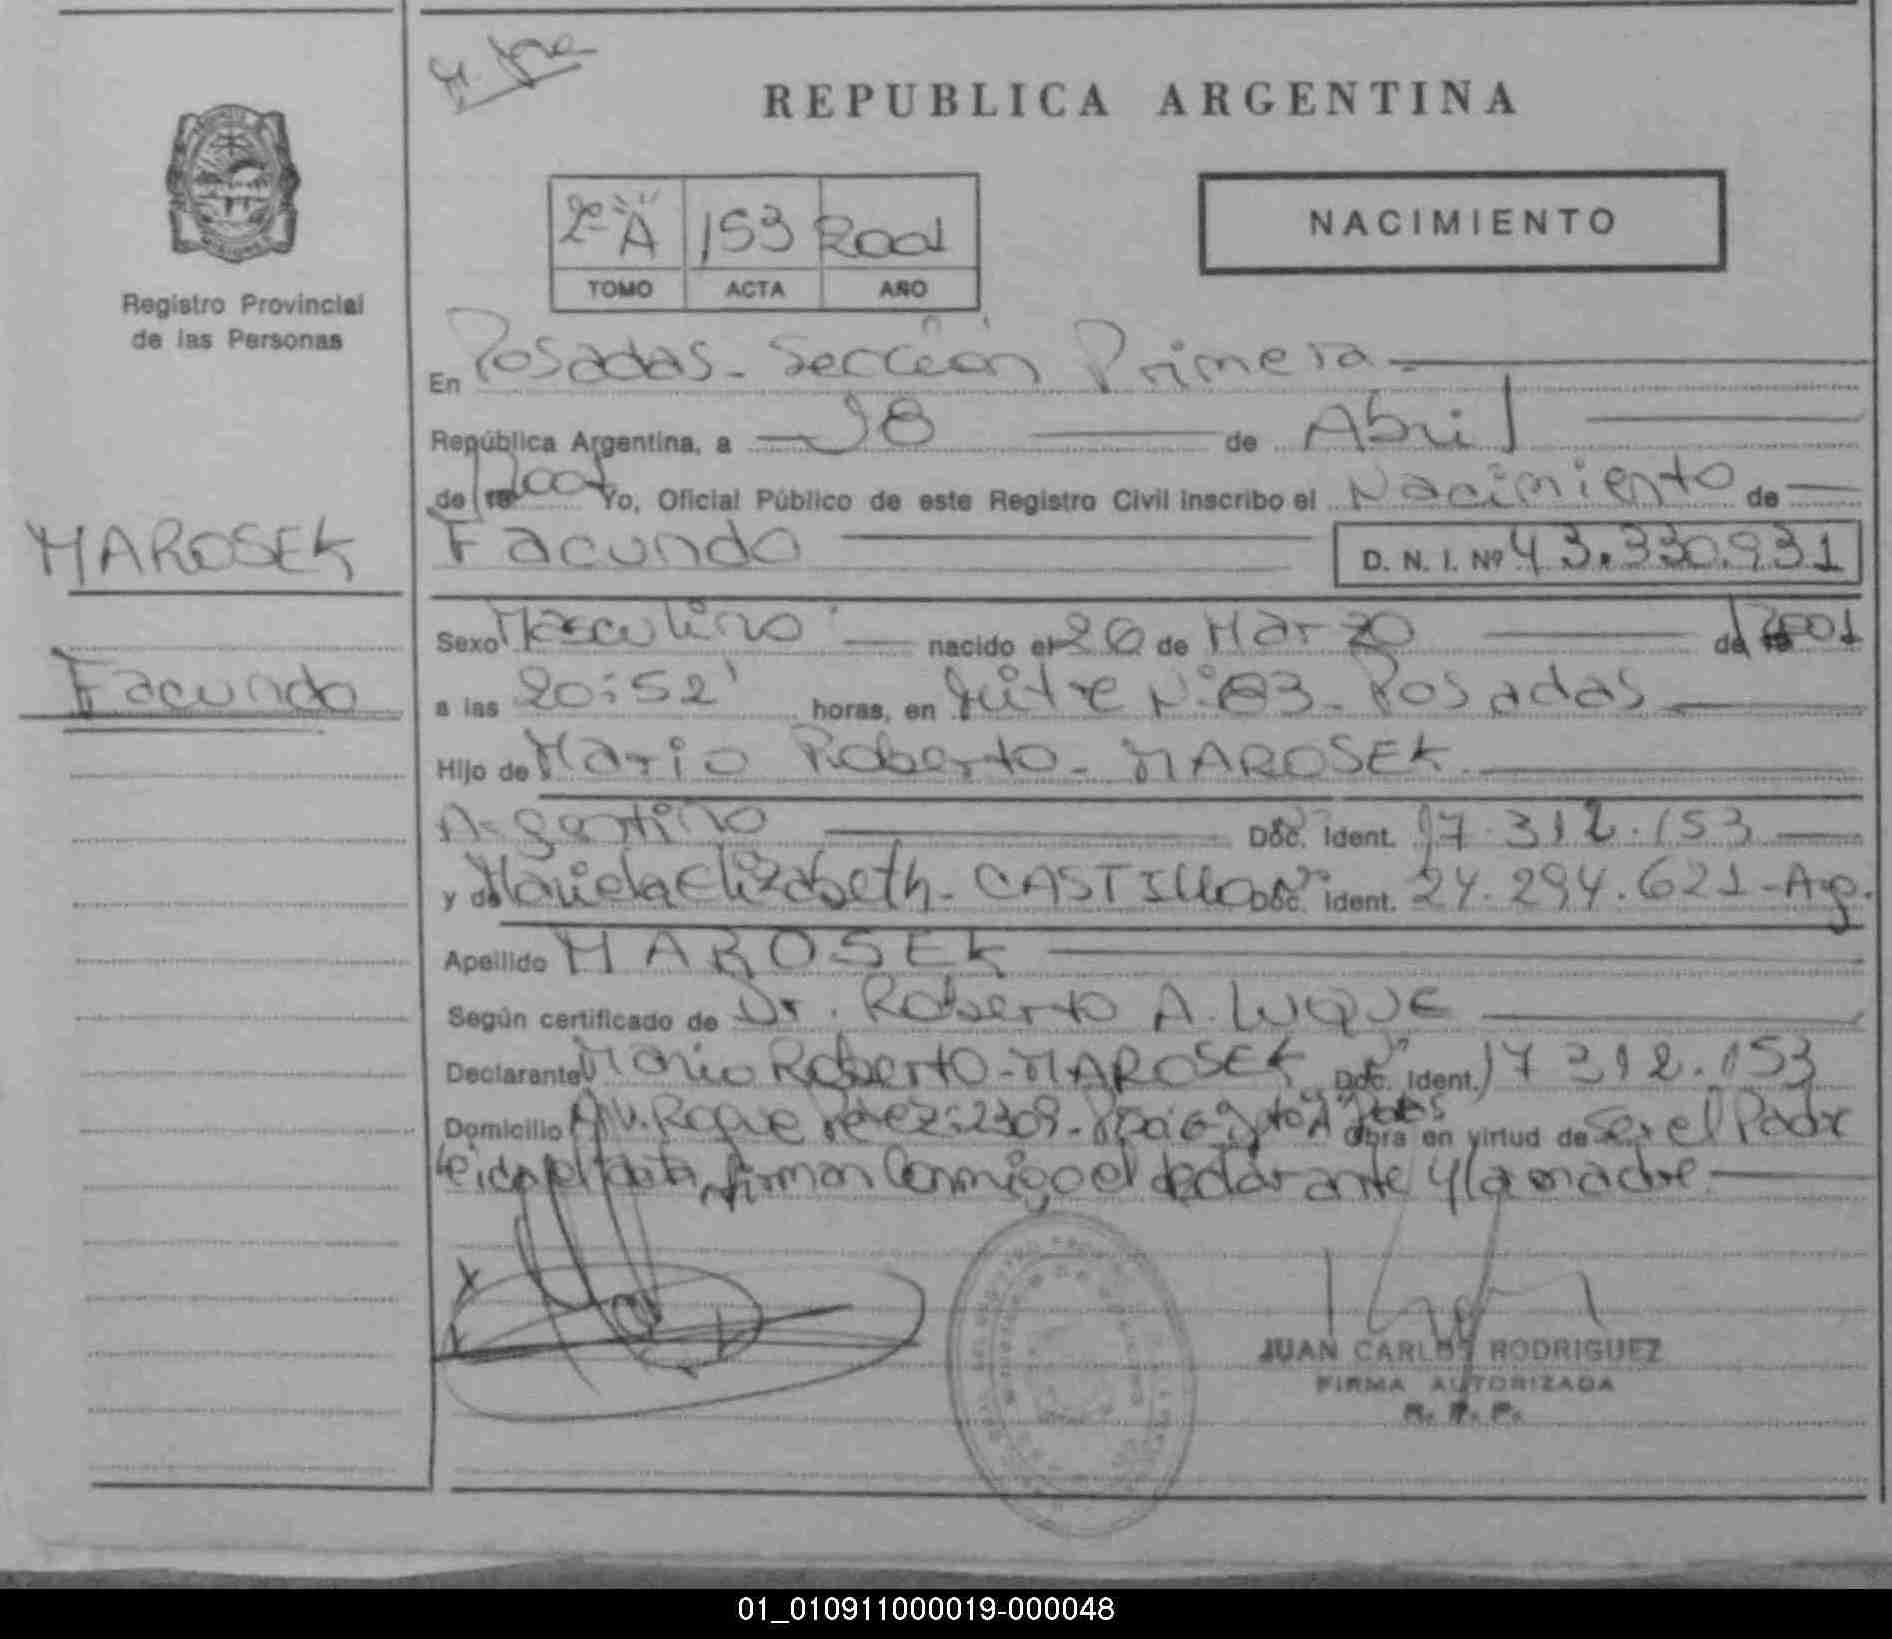 REPUBLICA ARGENTINA
2º "A" 153 2001
TOMO ACTA AÑO
NACIMIENTO
Registro Provincial
de las Personas
En Posadas - Sección Primera
República Argentina, a 18 de Abril
de 19 2001 Yo, Oficial Público de este Registro Civil inscribo el Nacimiento de
MAROSEK
Facundo
Facundo D. N. I. Nº 43.330.931
Sexo Masculino nacido el 26 de Marzo de 19 2001
a las 20:52' horas, en Mitre Nº 83 - Posadas
Hijo de Mario Roberto - MAROSEK
Argentino Doc. Ident. 17.312.153
y de Mariela Elizabeth - CASTILLO Doc. Ident. 24.294.621 - Arg.
Apellido MAROSEK
Según certificado de Dr. Roberto A. LUQUE
Declarante Mario Roberto - MAROSEK Doc. Ident. 17 312.153
Domicilio Av. Roque Perez 2309 - Obra en virtud de Ser el Padre
Leida el acta, firman Conmigo el declarante y la madre
JUAN CARLOS RODRIGUEZ
FIRMA AUTORIZADA
R. P. P.
01_010911000019-000048